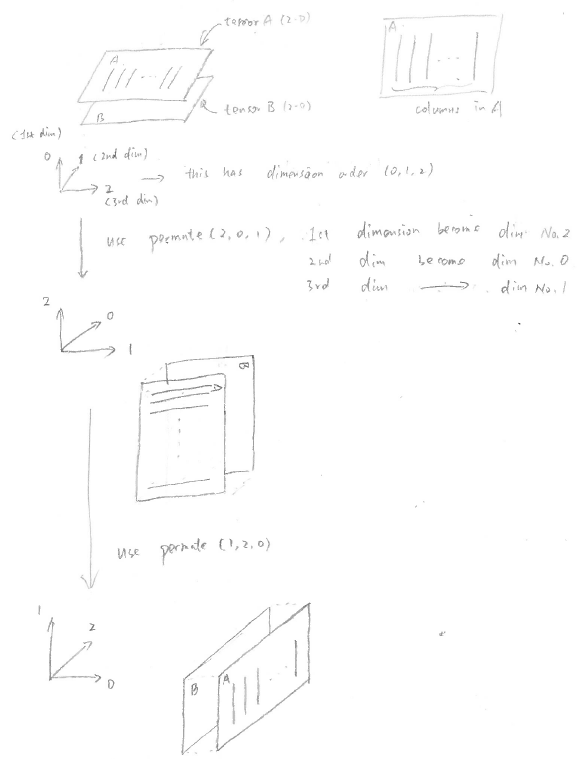 tensor A (2-D)
A
B
tensor B (2-D)
A
columns in A
(1st dim)
0
1 (2nd dim)
2
(3rd dim)
→ this has dimension order (0,1,2)
use permute (2,0,1), 1st dimension become dim No.2
2nd dim become dim No.0
3rd dim → dim No.1
2
0
1
A
B
use permute (1,2,0)
1
2
0
B
A